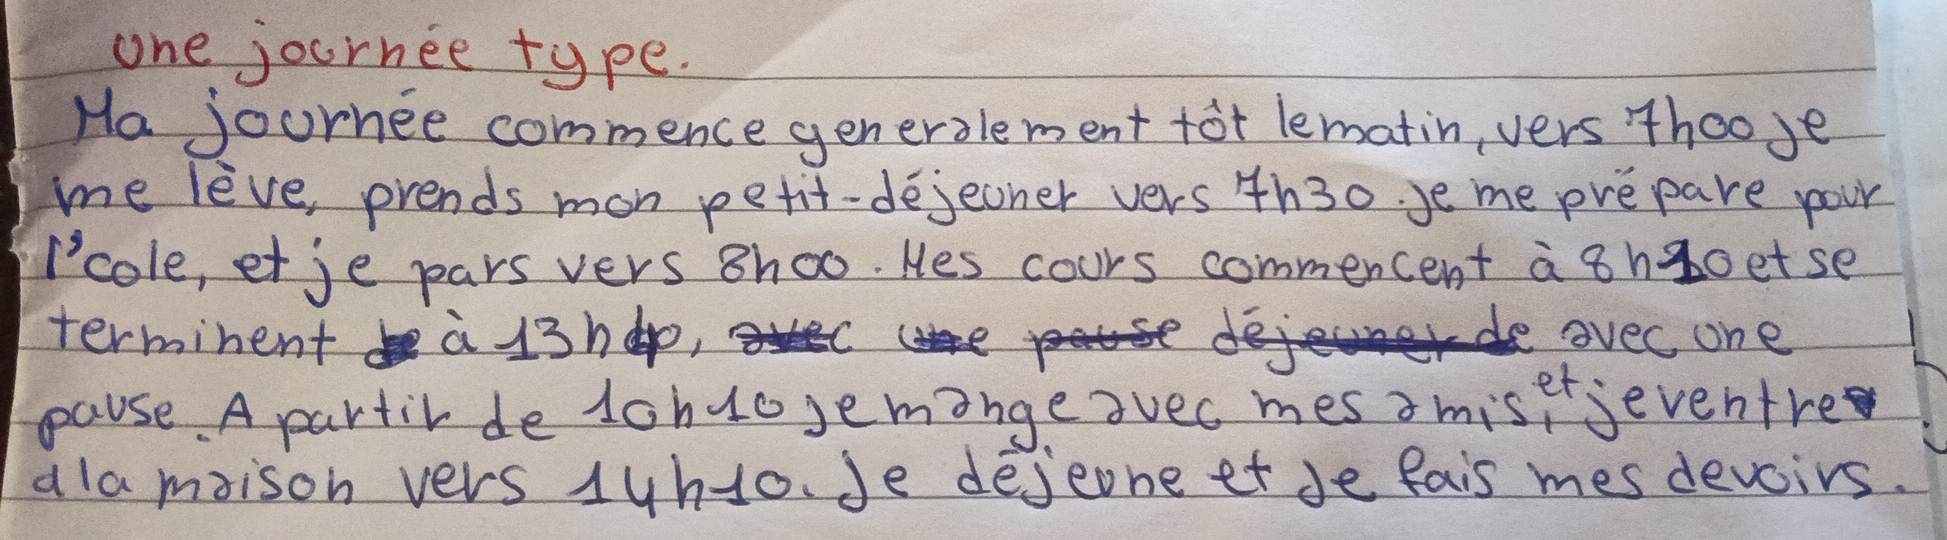 une journée type.
Ma journée commence generalement tôt lematin, vers 7h00 je
me lève, prends mon petit-déjeuner vers 7h30. je me prépare pour
l'cole, et je pars vers 8h00. Mes cours commencent à 8h et se
terminent à 13h, avec une
pause. A partir de 10h10 je mange avec mes amis, et je ventre
a la maison vers 14h10. Je déjeune et je fais mes devoirs.